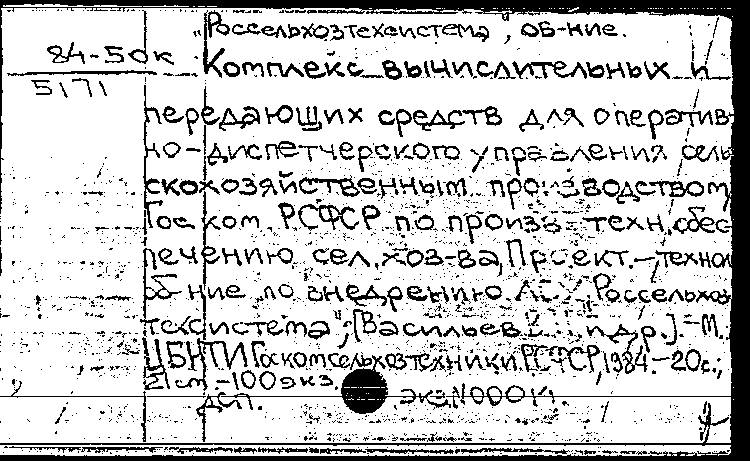 "Россельхозтехсистема", об-ние.
84-50к
5171
Комплекс вычислительных и
передающих средств для оператив-
но-диспетчерского управления сель-
скохозяйственным производством
Гос. ком. РСФСР по произв.-техн. обес-
печению сел. хоз-ва, Проект.-технол.
об-ние по внедрению АСУ "Россельхоз-
техсистема"; [Васильев и др.].-М.:
ЦБНТИ Госкомсельхозтехники РСФСР, 1984.-20с.;
21 см.-100 экз.
ДСП. экз. N00014.